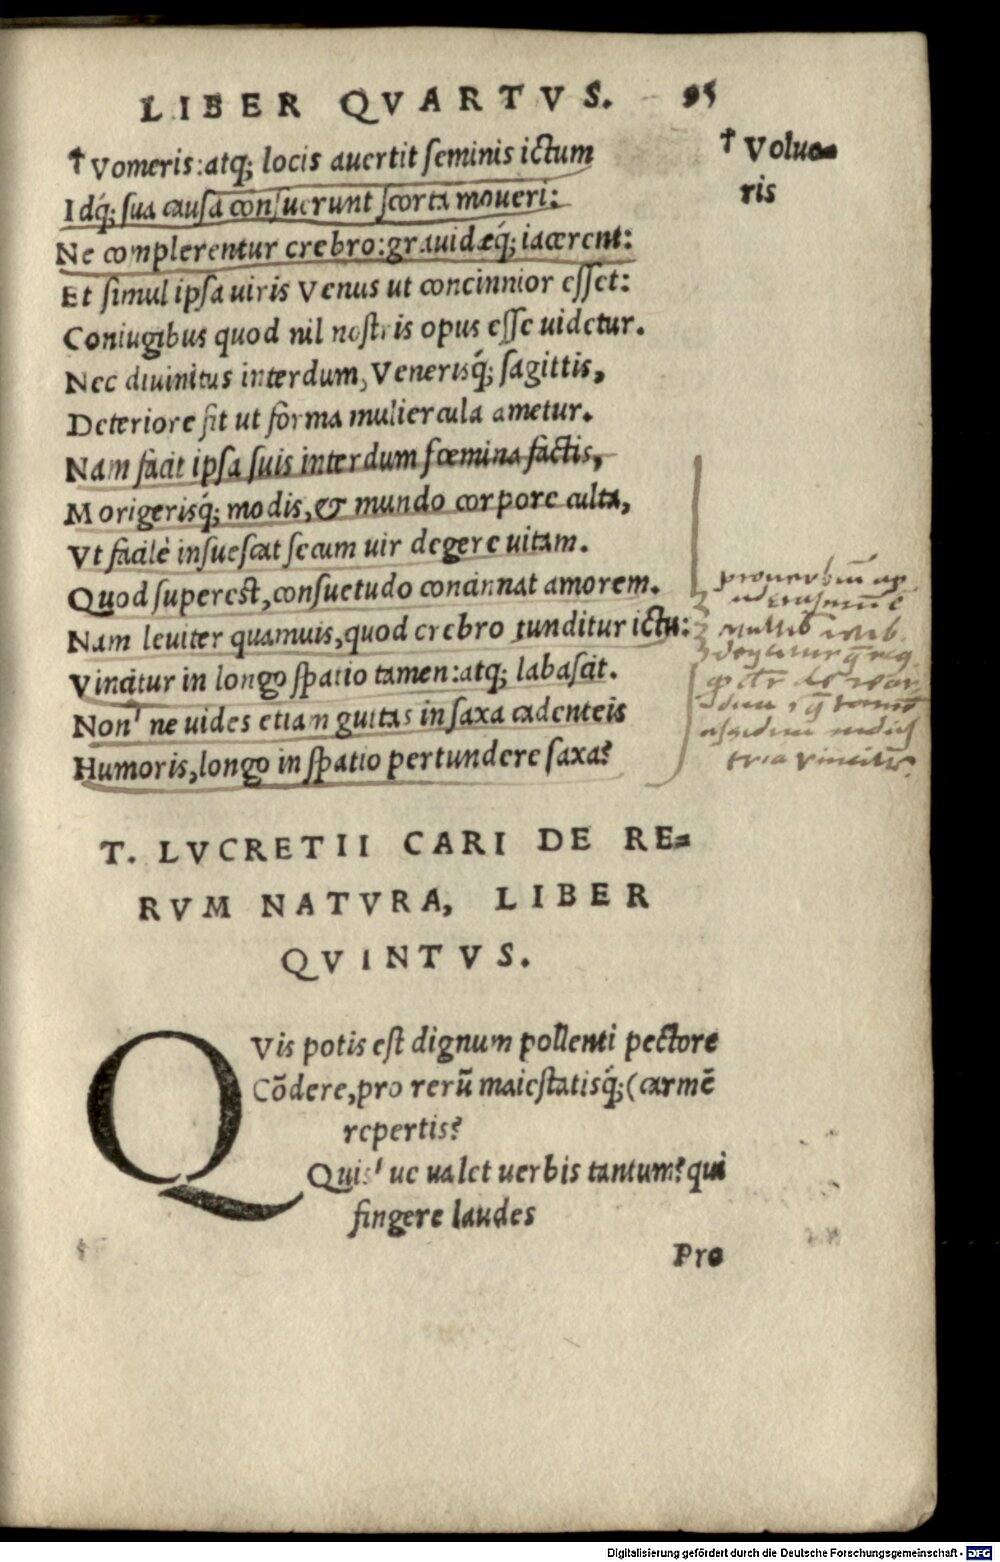 LIBER QVARTVS. 95
† Vomeris: atq; locis auertit seminis ictum
† Voluo=
ris
Idq́; sua causa consuerunt scorta moueri:
Ne complerentur crebro: grauidæq́; iacerent:
Et simul ipsa uiris Venus ut concinnior esset:
Coniugibus quod nil nostris opus esse uidetur.
Nec diuinitus interdum, Venerisq́; sagittis,
Deteriore fit ut forma muliercula ametur.
Nam facit ipsa suis interdum fœmina factis,
Morigerisq́; modis, & mundo corpore culta,
Vt facilè insuescat secum uir degere uitam.
Quod superest, consuetudo concinnat amorem.
Nam leuiter quamuis, quod crebro tunditur ictu:
Vincitur in longo spatio tamen: atq; labascit.
Non' ne uides etiam guttas in saxa cadenteis
Humoris, longo in spatio pertundere saxa?
prouerbiū ap
vincitur.
T. LVCRETII CARI DE RE=
RVM NATVRA, LIBER
QVINTVS.
QVis potis est dignum pollenti pectore
Cōdere, pro rerū maiestatisq́; (carmē
repertis?
Quis' ue ualet uerbis tantum? qui
fingere laudes
Pro
Digitalisierung gefördert durch die Deutsche Forschungsgemeinschaft - DFG